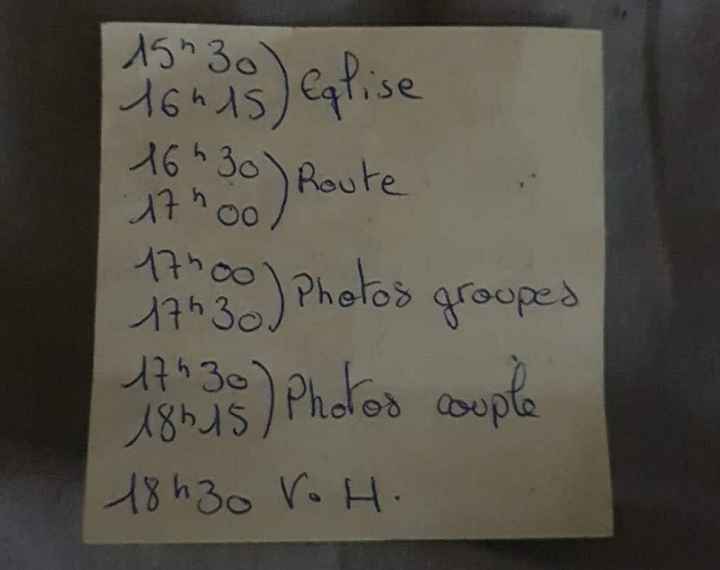 15h30
16h15) Eglise
16h30
17h00) Route
17h00
17h30) Photos groupes
17h30
18h15) Photos couple
18h30 V. H.